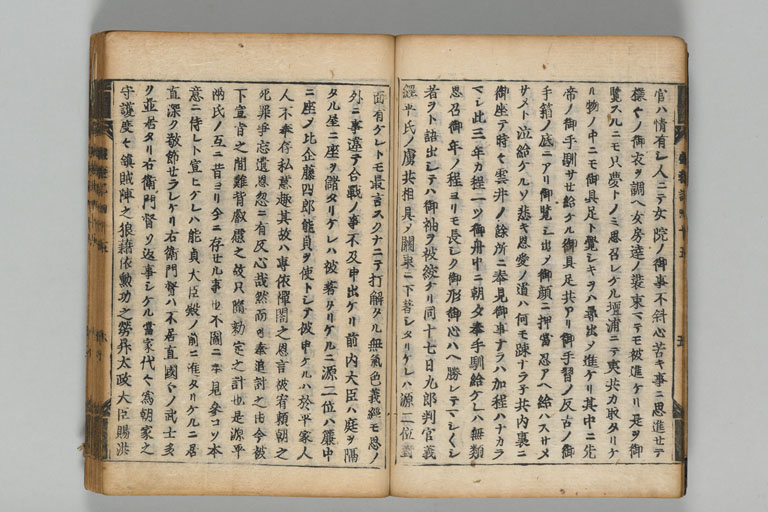 官ハ情有シ人ニテ女院ノ御事不斜心苦キ事ニ思進セテ
様々ノ御衣ヲ調ヘ女房達ノ装束マテモ被進ケリ是ヲ御
覧スルニモ只夢トノミ思召レケル壇浦ニテ夷共カ取タリケ
ル物ノ中ニモ御具足ト覺シキヲハ尋出メ進ケリ其中ニ先
帝ノ御手馴サセ給ケル御具足共アリ御手習ノ反古ノ御
手箱ノ底ニアリ御覧シ出メ御顔ニ押當忍アヘ給ハスサメ
サメト泣給ケルソ悲キ恩愛ノ道ハ何モ踈ナラ子共内裏ニ
御座テ時々雲井ノ餘所ニ奉見御事ナラハ加程ハナカラ
マシ此三年カ程一ツ御舟中ニ朝夕奉手馴給ケレハ無類
思召御年ノ程ヨリモ長シク御形御心ハヘ勝レテマシ〱シ
者ヲト詰出シテハ御袖ヲ被絞ケリ同十七日九郎判官義
經平氏ノ虜共相具メ關東ニ下著シタリケレハ源二位對
面有ケレトモ最言スクナニテ打解タル無氣色義經モ思ノ
外ニ事違テ合戰ノ事不及申出ケリ前内大臣ハ庭ヲ隔
タル屋ニ座ヲ儲タリケレハ被著タリケルニ源二位ハ簾中
ニ座メ比企藤四郎能員ヲ使トシテ被申ケルハ於平家人
人不奉存私意趣其故ハ専依禅閤之恩言被宥頼朝之
死罪争忘遺恩忽ニ有反心哉然而ヲ奉追討之由令被
下宣旨之間難背叡慮之故只隨勅定之計也是源平
両氏ノ互ニ昔ヨリ今ニ存セル事也不圖ニ奉見參コソ本
意ニ侍レト宣ヒケレハ能員大臣殿ノ前ニ進タリケルニ居
直深ク敬節セラレケリ右衛門督ハ不居直國々ノ武士多
ク並居タリ右衛門督ソ返事シケル當家代々爲朝家之
守護度々鎮賊陣之狼藉依勲功之勞昇太政大臣賜洪